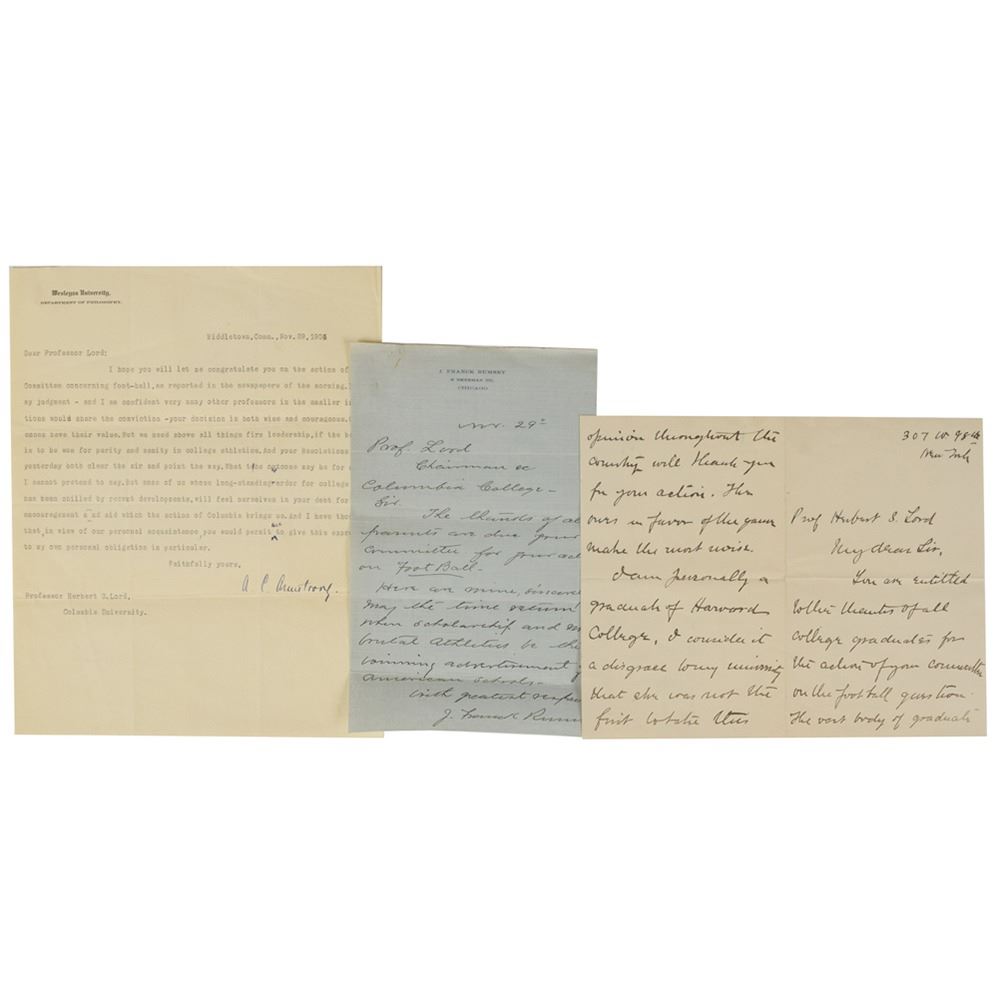 Wesleyan University,
DEPARTMENT OF PHILOSOPHY.
Middletown, Conn., Nov. 29, 1905
Dear Professor Lord;
I hope you will let me congratulate you on the action of
Committee concerning foot-ball, as reported in the newspapers of the morning.
my judgment - and I am confident very many other professors in the smaller in
tions would share the conviction -your decision is both wise and courageous.
cones have their value. But we need above all things firm leadership, if the
is to be won for purity and sanity in college athletics. And your Resolutions
yesterday both clear the air and point the way. What the outcome may be for
I cannot pretend to say. But some of us whose long-standing ardor for college
has been chilled by recent developments, will feel ourselves in your debt for
encouragement and aid which the action of Columbia brings us. And I have tho
that, in view of our personal acquaintance, you would permit me to give this expre
to my own personal obligation in particular.
Faithfully yours,
A. C. Armstrong.
Professor Herbert G. Lord,
Columbia University.
J. FRANCK RUMSEY
CHICAGO
Nov. 29th
Prof. Lord
Chairman &c
Columbia College -
Sir.
The thanks of al
parents are due your
Committee for your act
on Foot Ball -
Here are mine, sincere
May the time return
when scholarship and
brutal athletics be the
winning advertisement
American schools -
With greatest respect
J. Franck Rum
opinion throughout the
country will thank you
for your action. The
ones in favor of the game
make the most noise.
I am personally a
graduate of Harvard
College, & consider it
a disgrace to my university
that she was not the
first to take this
307 W 98th
New York
Prof Herbert S. Lord
My dear Sir,
You are entitled
to the thanks of all
college graduates for
the action of your committee
on the football question.
The vast body of graduate